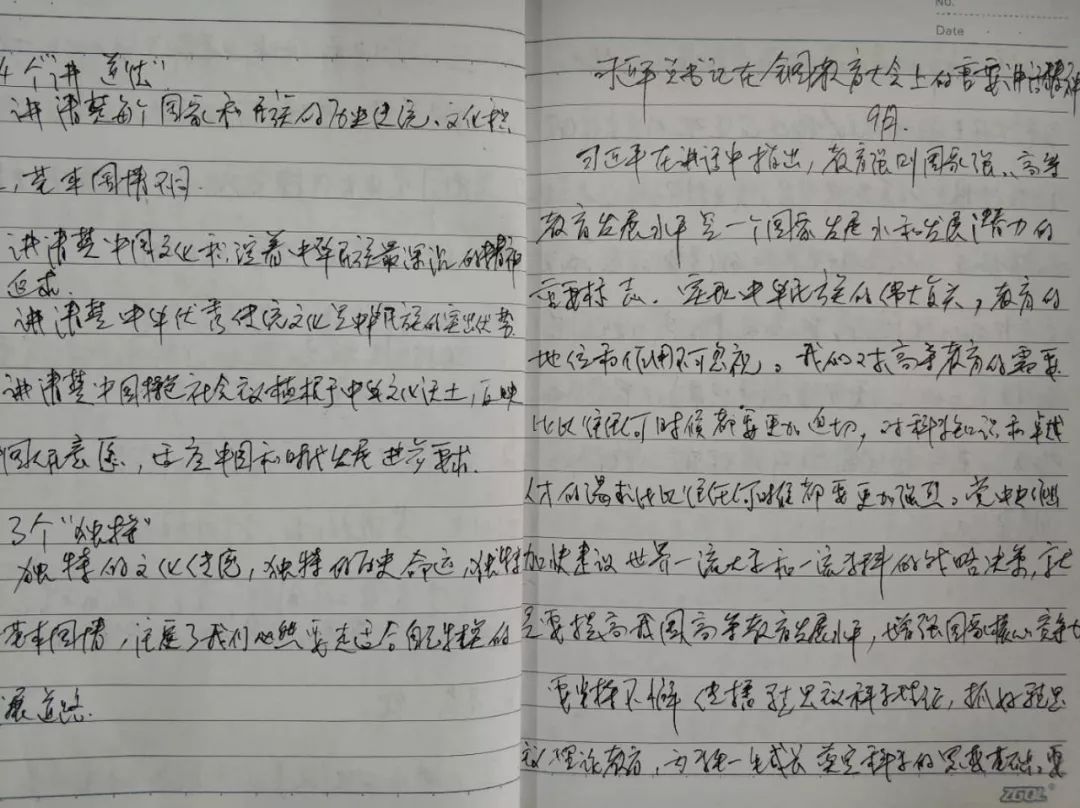 4个"讲清楚"
讲清楚每个国家和民族的历史传统、文化积
基本国情不同.
讲清楚中国文化积淀着中华民族最深沉的精神
追求.
讲清楚中华优秀传统文化是中华民族的突出优势
讲清楚中国特色社会主义植根于中华文化沃土,反映
中国人民意愿,适应中国和时代发展进步要求.
3个"独特"
独特的文化传统,独特的历史命运,独特
基本国情,注定了我们必然要走适合自己特点的
展道路.
No.
Date
习近平总书记在全国教育大会上的重要讲话精神
9月.
习近平在讲话中指出,教育强则国家强.高等
教育发展水平是一个国家发展水和发展潜力的
重要标志.实现中华民族的伟大复兴,教育的
地位和作用不可忽视。我们对高等教育的需要
比以往任何时候都要更加迫切,对科学知识和卓越
人才的渴求比以往任何时候都要更加强烈。党中央
加快建设世界一流大学和一流学科的战略决策,就
是要提高我国高等教育发展水平,增强国家核心竞争力
要坚持不懈传播马克思主义科学理论,抓好马克思
主义理论教育,为学生一生成长奠定科学的思想基础.要
ZGOL